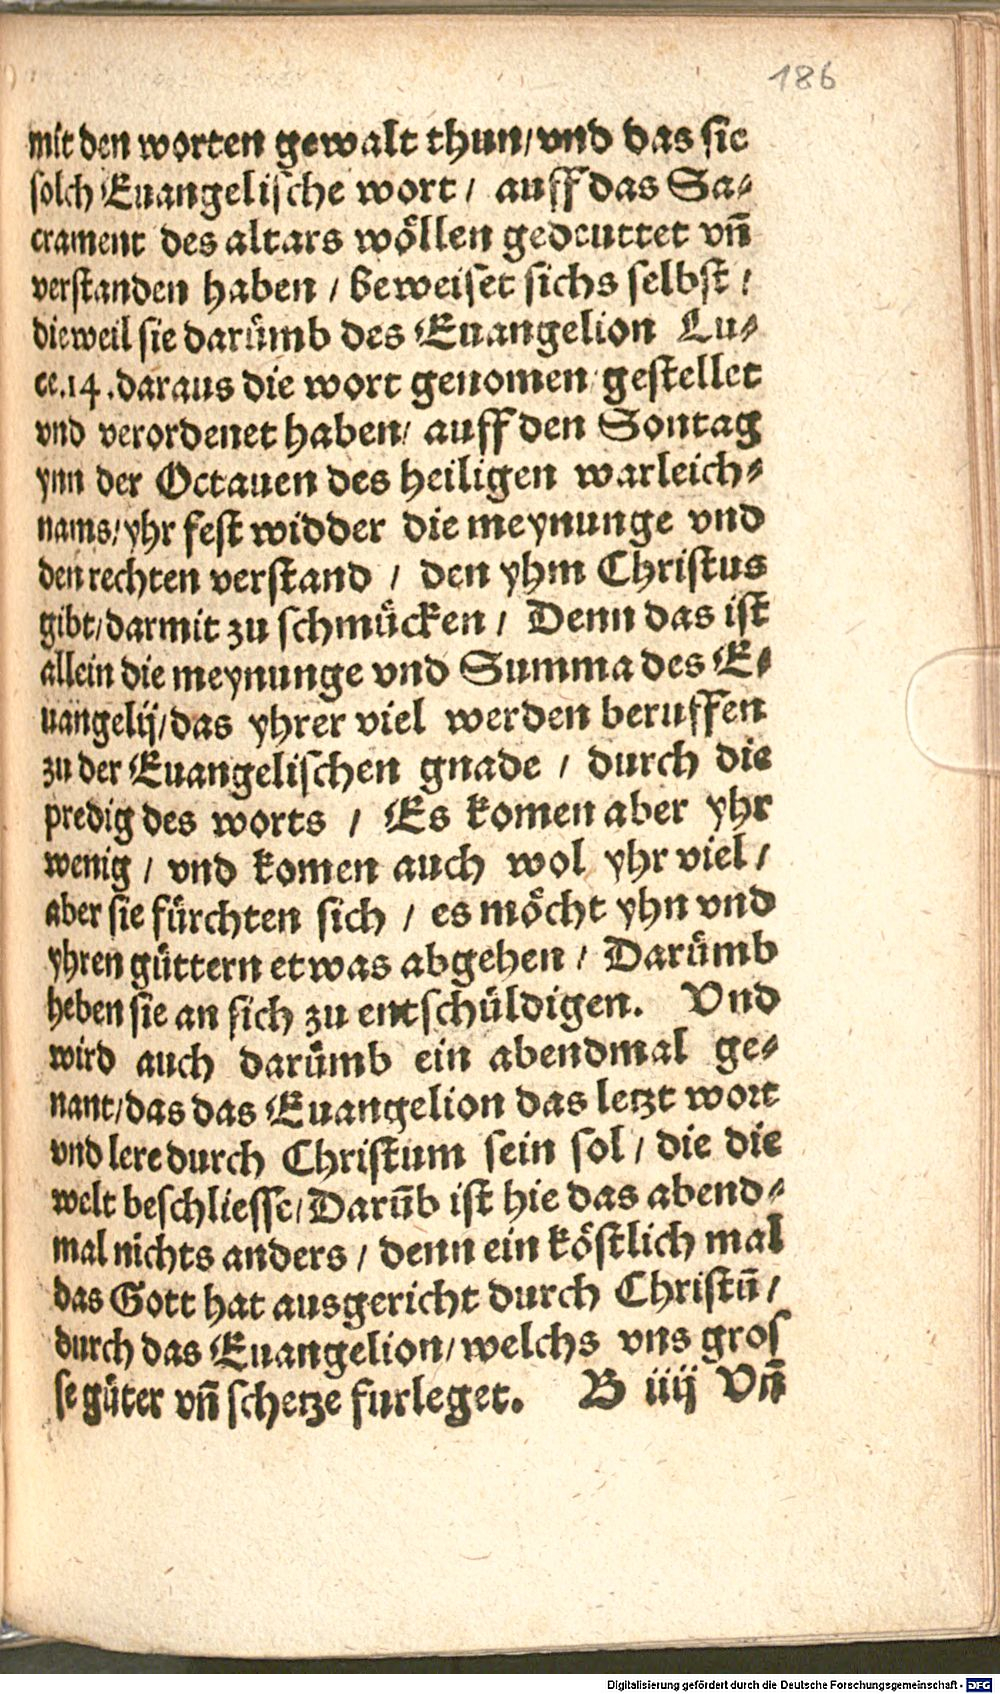 186
mit den worten gewalt thun/vnd das sie
solch Euangelische wort/ auff das Sa-
crament des altars wöllen gedeuttet vn̄
verstanden haben / beweiset sichs selbst /
dieweil sie darümb des Euangelion Lu-
ce.14.daraus die wort genomen gestellet
vnd verordenet haben/ auff den Sontag
ynn der Octauen des heiligen warleich-
nams/yhr fest widder die meynunge vnd
den rechten verstand / den yhm Christus
gibt/darmit zu schmücken / Denn das ist
allein die meynunge vnd Summa des E-
uangelij/das yhrer viel werden beruffen
zu der Euangelischen gnade / durch die
predig des worts / Es komen aber yhr
wenig / vnd komen auch wol yhr viel/
aber sie fürchten sich / es möcht yhn vnd
yhren güttern etwas abgehen / Darümb
heben sie an sich zu entschüldigen. Vnd
wird auch darümb ein abendmal ge-
nant/das das Euangelion das letzt wort
vnd lere durch Christum sein sol / die die
welt beschliesse/Darüb̄ ist hie das abend-
mal nichts anders / denn ein köstlich mal
das Gott hat ausgericht durch Christū /
durch das Euangelion/welchs vns gros
se güter vn̄ schetze furleget. B iiij Vn̄
Digitalisierung gefördert durch die Deutsche Forschungsgemeinschaft - DFG